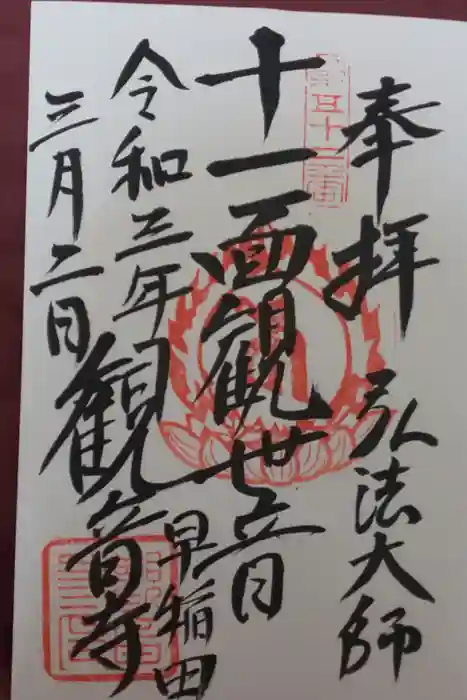 奉拝
弘法大師
十一面観世音
令和三年
三月二日
早稲田
観音寺